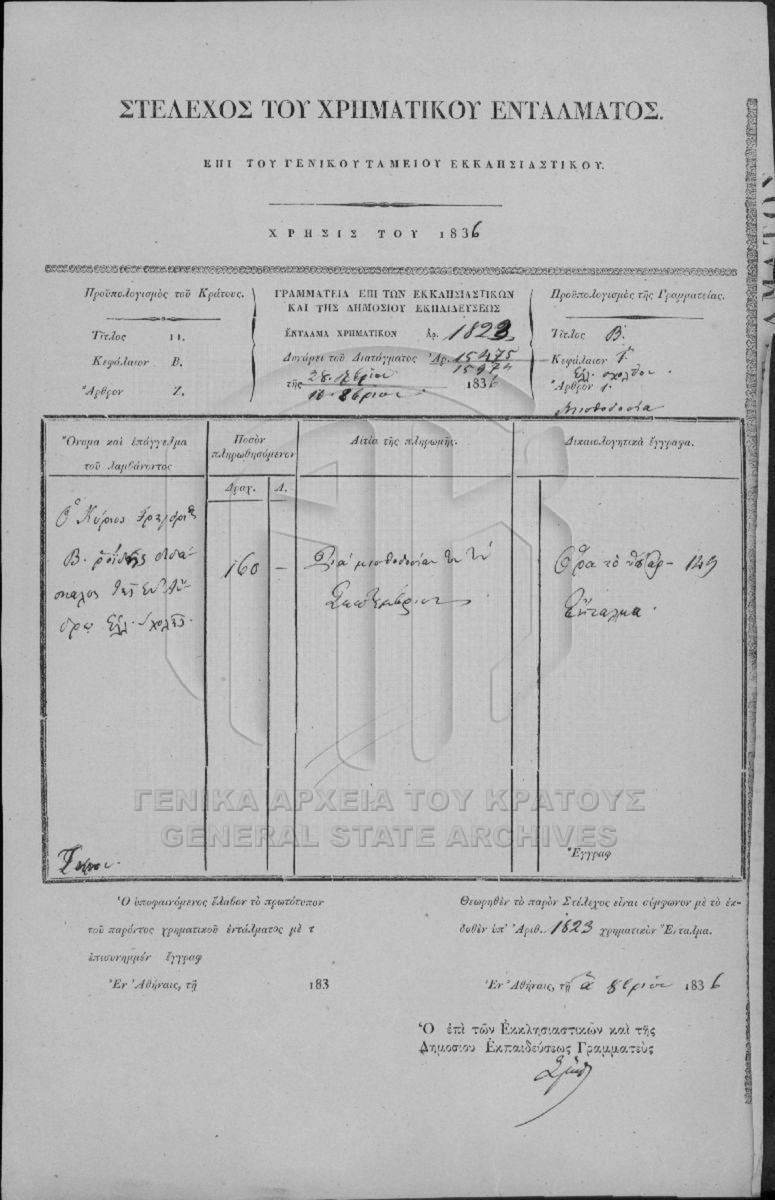 ΣΤΕΛΕΧΟΣ ΤΟΥ ΧΡΗΜΑΤΙΚΟΥ ΕΝΤΑΛΜΑΤΟΣ.
ΕΠΙ ΤΟΥ ΓΕΝΙΚΟΥ ΤΑΜΕΙΟΥ ΕΚΚΛΗΣΙΑΣΤΙΚΟΥ.
ΧΡΗΣΙΣ ΤΟΥ 1836
Προϋπολογισμὸς τοῦ Κράτους.
Τίτλος
Κεφάλαιον Β.
Ἄρθρον Ζ.
ΓΡΑΜΜΑΤΕΙΑ ΕΠΙ ΤΩΝ ΕΚΚΛΗΣΙΑΣΤΙΚΩΝ
ΚΑΙ ΤΗΣ ΔΗΜΟΣΙΟΥ ΕΚΠΑΙΔΕΥΣΕΩΣ
ΕΝΤΑΛΜΑ ΧΡΗΜΑΤΙΚΟΝ Ἀρ. 1823
Δυνάμει τοῦ Διατάγματος Ἀρ. 15475
15974
τῆς 1836
Προϋπολογισμὸς τῆς Γραμματείας.
Τίτλος Β.
Κεφάλαιον
Ἄρθρον 1.
Μισθοδοσία
Ὄνομα καὶ ἐπάγγελμα
τοῦ λαμβάνοντος
Ποσὸν
πληρωθησόμενον
Δραχ. Λ.
Αἰτία τῆς πληρωμῆς.
Δικαιολογητικὰ ἔγγραφα.
Ὁ Κύριος
160 —
Διὰ μισθοδοσίαν του τοῦ
Σεπτεμβρίου
Ὅρα τὸ ὑπ' ἀρ 149
Ἔνταλμα.
ΓΕΝΙΚΑ ΑΡΧΕΙΑ ΤΟΥ ΚΡΑΤΟΥΣ
GENERAL STATE ARCHIVES
Ἔγγραφ
Ὁ ὑποφαινόμενος ἔλαβον τὸ πρωτότυπον
τοῦ παρόντος χρηματικοῦ ἐντάλματος μὲ τ
ἐπισυνημμέν ἔγγραφ
Ἐν Ἀθήναις, τῇ 183
Θεωρηθὲν τὸ παρὸν Στέλεχος εἶναι σύμφωνον μὲ τὸ ἐκ-
δοθὲν ὑπ' Ἀριθ. 1823 χρηματικὸν Ἔνταλμα.
Ἐν Ἀθήναις, τῇ 1836
Ὁ ἐπὶ τῶν Ἐκκλησιαστικῶν καὶ τῆς
Δημοσίου Ἐκπαιδεύσεως Γραμματεὺς